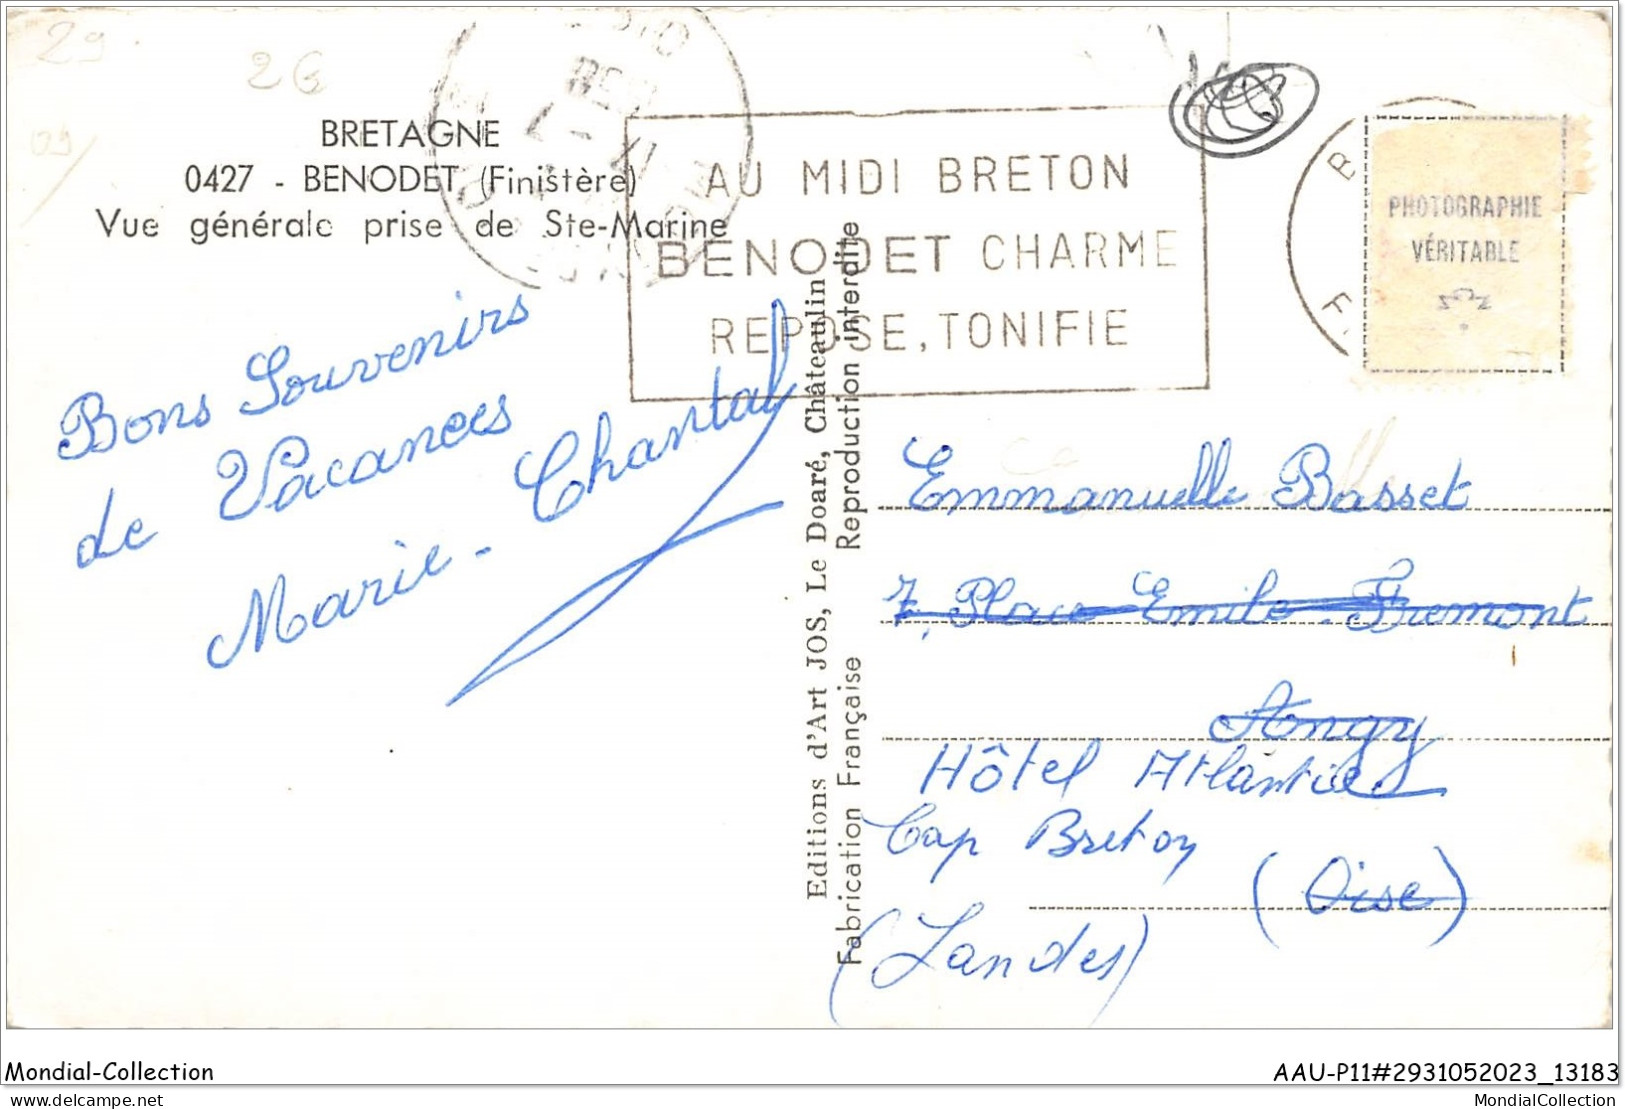 29
26
BRETAGNE
0427 - BENODET (Finistère)
Vue générale prise de Ste-Marine
AU MIDI BRETON
BENODET CHARME
REPOSE, TONIFIE
PHOTOGRAPHIE
VÉRITABLE
Bons Souvenirs
de Vacances
Marie-Chantal
Editions d'Art JOS, Le Doaré, Châteaulin
Reproduction interdite
Fabrication Française
Emmanuelle Basset
7, Place Emile-Fremont
Angy
Hôtel Atlantic
Cap Breton
(Oise)
(Landes)
Mondial-Collection
AAU-P11#2931052023_13183
delcampe.net
MondialCollection